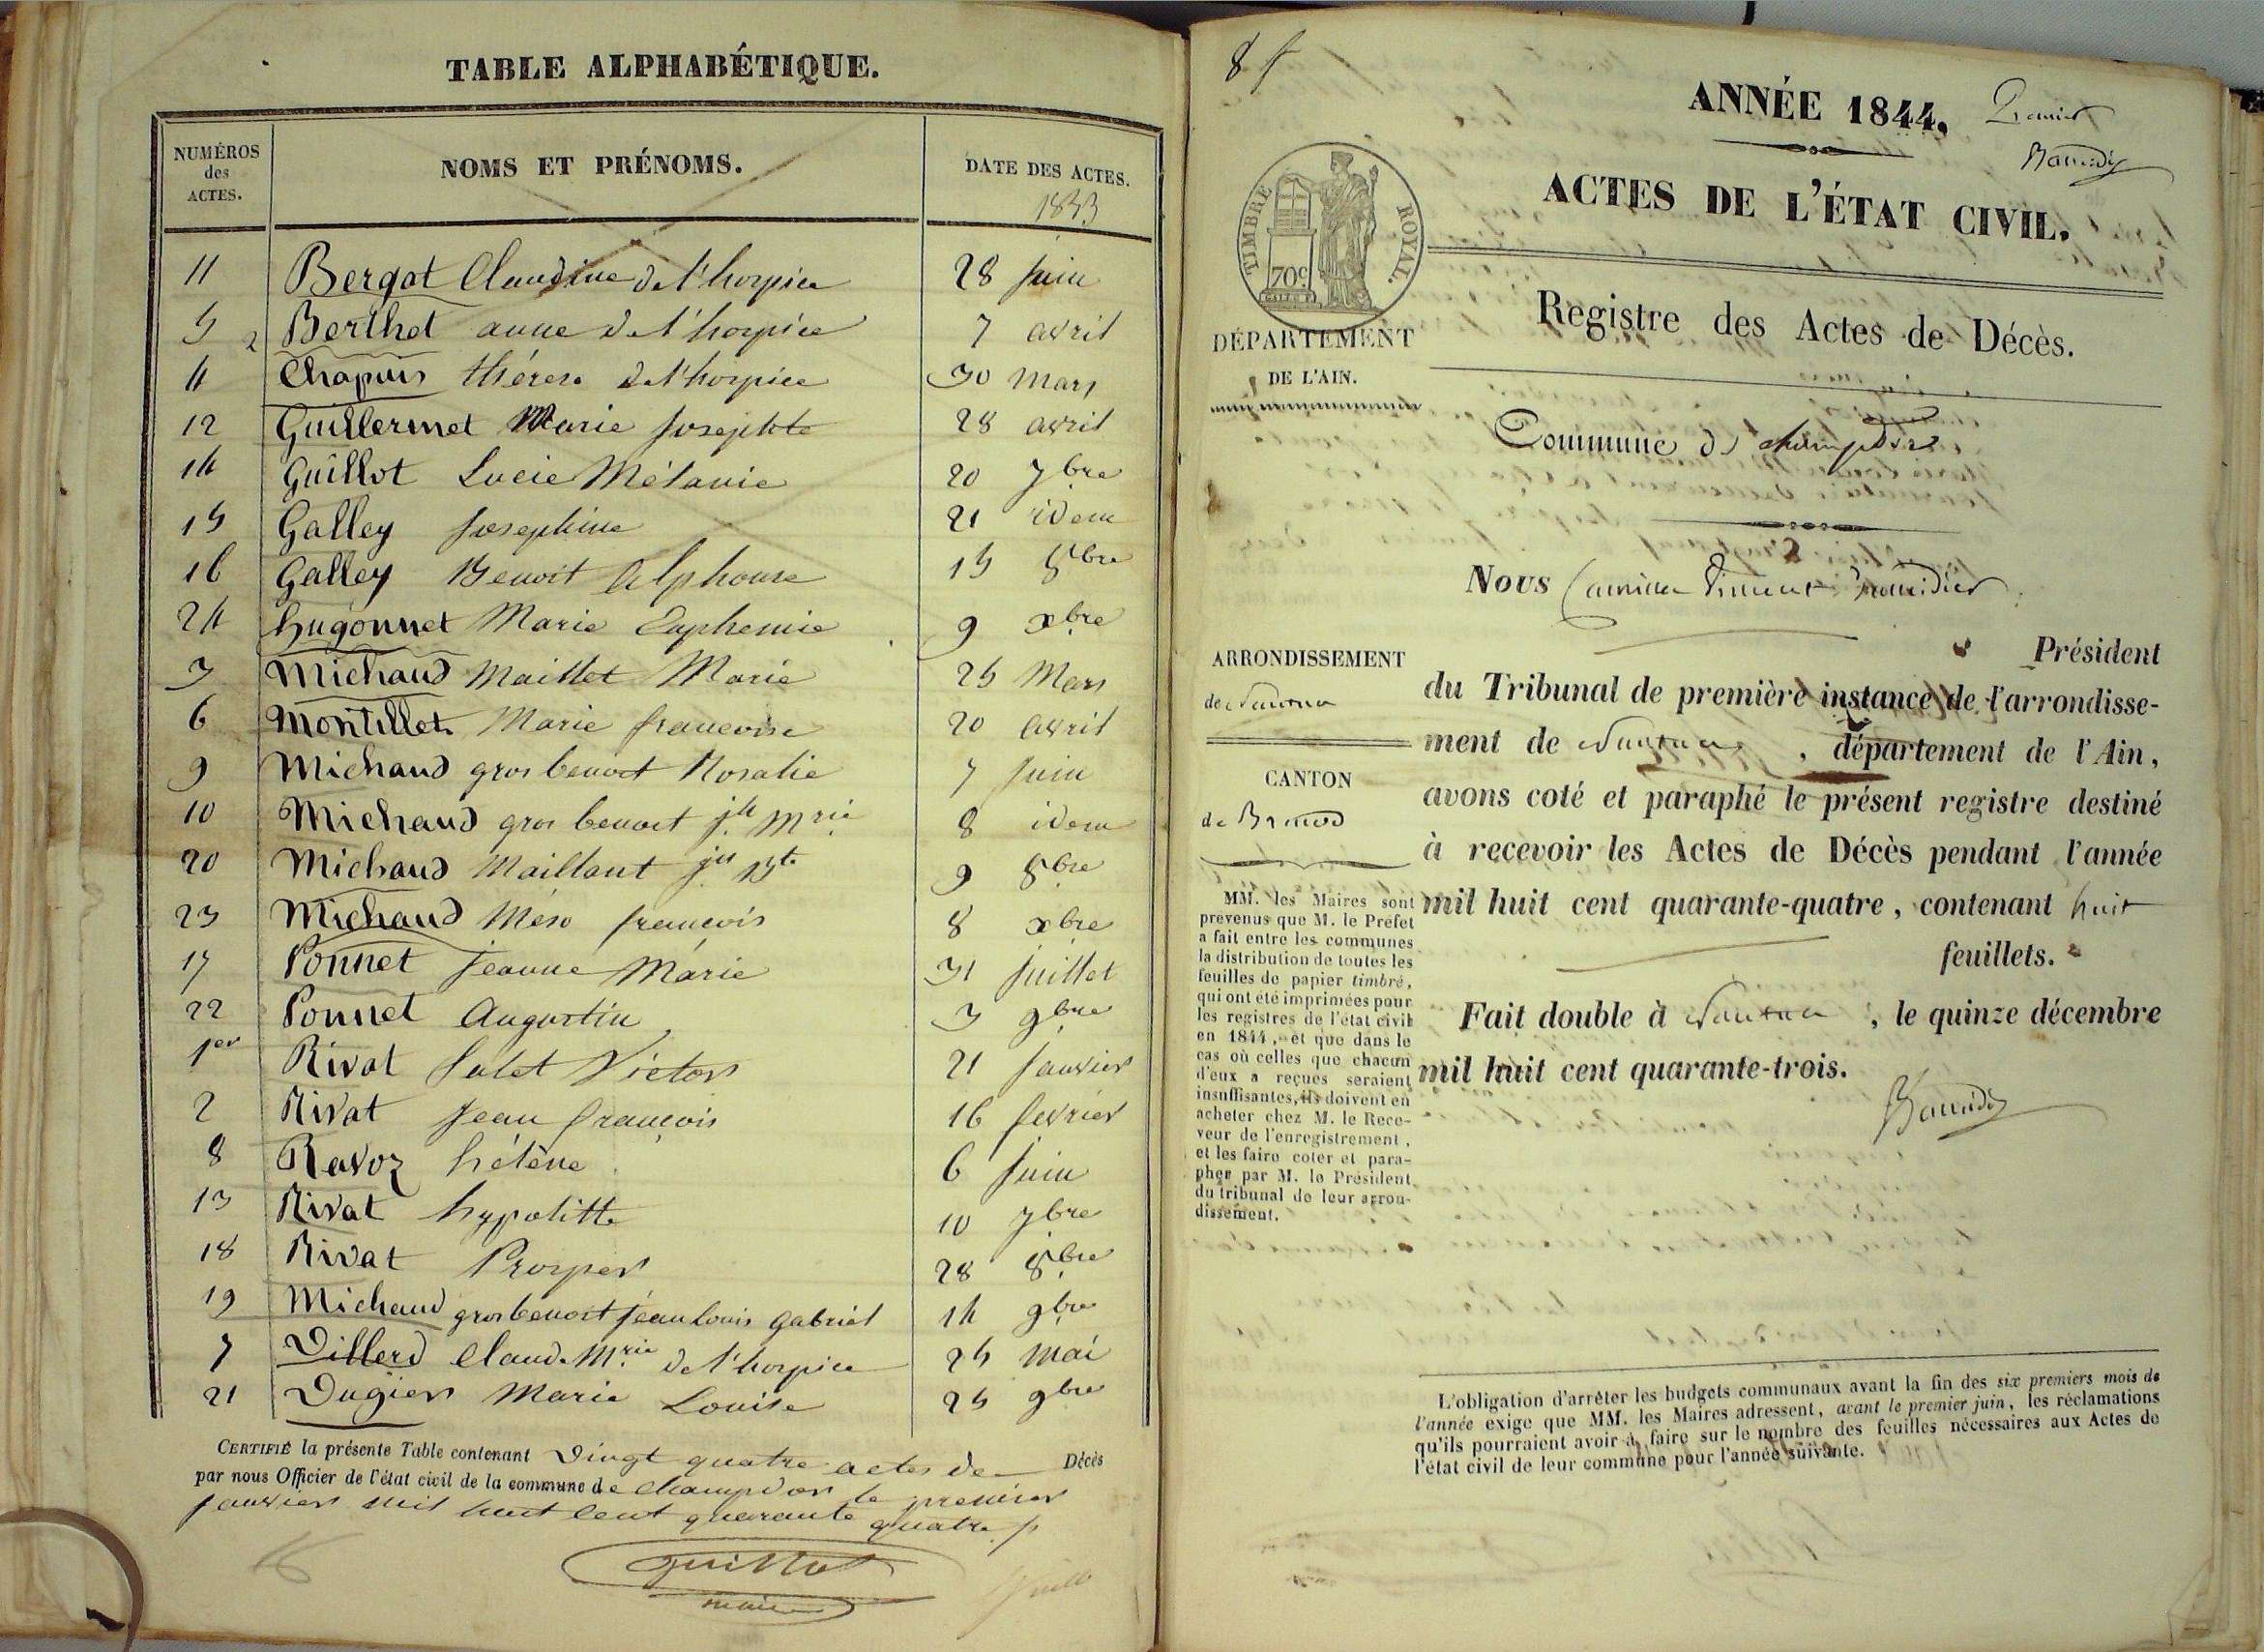 TABLE ALPHABÉTIQUE.
NUMÉROS des ACTES. NOMS ET PRÉNOMS. DATE DES ACTES.
11 Bergat Claudine de l'hospice 28 juin
5 Berthet anne de l'hospice 7 avril
4 Chapuis thérese de l'hospice 30 Mars
12 Guillermet Marie Josephte 28 avril
14 Guillot Lucie Mélanie 20 7bre
15 Galley Josephine 21 idem
16 Galley Benoit Alphonse 15 8bre
24 hugonnet Marie Euphemie 9 xbre
3 Michaud Maillet Marie 25 Mars
6 Montillet Marie francoise 20 avril
9 Michaud gros benoit Rosalie 7 juin
10 Michaud gros benoit jh Mrie 8 idem
20 Michaud Maillant jn Bte 9 8bre
23 Michaud Méso francois 8 xbre
17 Ponnet Jeanne Marie 31 juillet
22 Ponnet Augustin 3 9bre
1er Rivat Julet Victor 21 janvier
2 Rivat Jean françois 16 fevrier
8 Ravoz hélène 6 juin
13 Rivat hypolitte 10 7bre
18 Rivat Prosper 28 8bre
19 Michaud gros benoit jean louis gabriel 14 9bre
7 Villerd Claude Mrie de l'hospice 25 mai
21 Vugier Marie Louise 25 9bre
CERTIFIÉ la présente Table contenant vingt quatre actes de Décès
par nous Officier de l'état civil de la commune de Champdor le premier
janvier mil huit cent quarante quatre
guillot
maire
8 f
ANNÉE 1844.
ACTES DE L'ÉTAT CIVIL.
TIMBRE ROYAL.
70c
Registre des Actes de Décès.
DÉPARTEMENT
DE L'AIN.
Commune de champdor
Nous
Président
ARRONDISSEMENT
de Nantua
du Tribunal de première instance de l'arrondisse-
ment de Nantua, département de l'Ain,
CANTON
de Brenod
avons coté et paraphé le présent registre destiné
à recevoir les Actes de Décès pendant l'année
mil huit cent quarante-quatre, contenant huit
feuillets.
Fait double à Nantua, le quinze décembre
mil huit cent quarante-trois.
MM. les Maires sont
prévenus que M. le Préfet
a fait entre les communes
la distribution de toutes les
feuilles de papier timbré,
qui ont été imprimées pour
les registres de l'état civil
en 1844, et que dans le
cas où celles que chacun
d'eux a reçues seraient
insuffisantes, ils doivent en
acheter chez M. le Rece-
veur de l'enregistrement,
et les faire coter et para-
pher par M. le Président
du tribunal de leur arron-
dissement.
L'obligation d'arrêter les budgets communaux avant la fin des six premiers mois de
l'année exige que MM. les Maires adressent, avant le premier juin, les réclamations
qu'ils pourraient avoir à faire sur le nombre des feuilles nécessaires aux Actes de
l'état civil de leur commune pour l'année suivante.